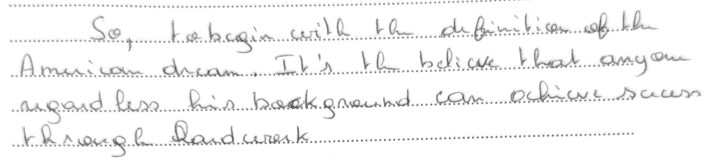 So, to begin with the definition of the
American dream. It's the believe that anyone
regardless his background can achieve sucess
through hardwork